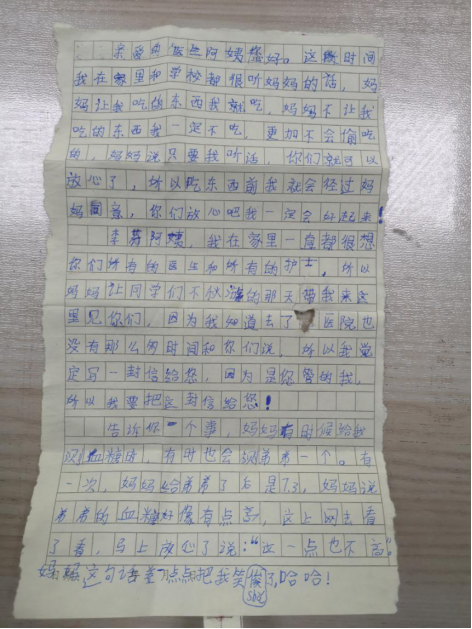 亲爱的医生阿姨您好。这段时间
我在家里和学校都很听妈妈的话，妈
妈让我吃的东西我就吃，妈妈不让我
吃的东西我一定不吃，更加不会偷吃
的，妈妈说只要我听话，你们就可以
放心了，所以吃东西前我就会经过妈
妈同意，你们放心吧我一定会好起来！
李 阿姨，我在家里一直都很想
你们所有的医生和所有的护士，所以
妈妈让同学们不 的那天带我来这
里见你们，因为我知道去了 医院也
没有那么多时间和你们说，所以我觉
定写一封信给您，因为是你管的我，
所以我要把这封信给您！
告诉你一个事，妈妈有时候给我
测血糖时，有时也会测弟弟一个。有
一次，妈妈给弟弟了后是7.3，妈妈说
弟弟的血糖好像有点高，这上网去看
了看，马上放心了说："这一点也不高"
妈妈这句话差一点点把我笑 了，哈哈！